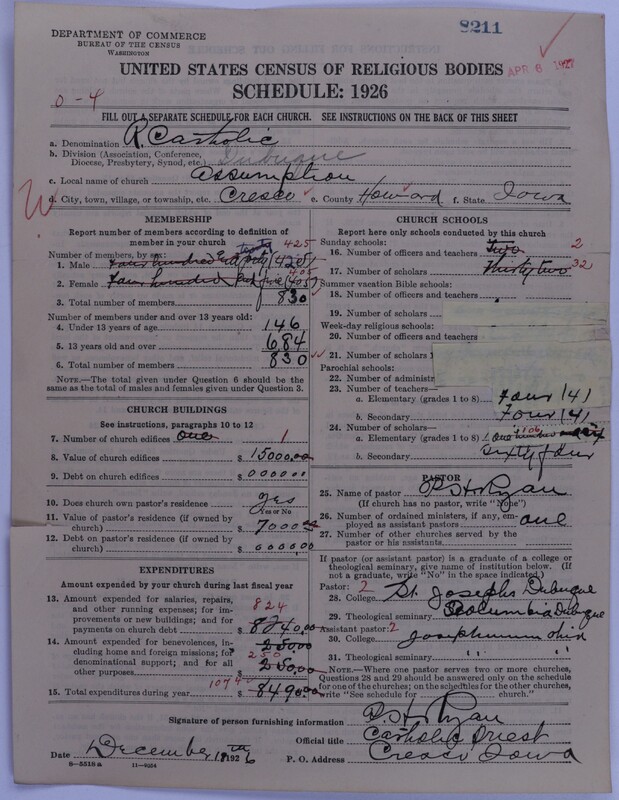 8211
DEPARTMENT OF COMMERCE
BUREAU OF THE CENSUS
WASHINGTON
UNITED STATES CENSUS OF RELIGIOUS BODIES
APR 6 1928
SCHEDULE: 1926
0-4
FILL OUT A SEPARATE SCHEDULE FOR EACH CHURCH. SEE INSTRUCTIONS ON THE BACK OF THIS SHEET
a. Denomination R. Catholic
b. Division (Association, Conference, Diocese, Presbytery, Synod, etc.) Dubuque
c. Local name of church Assumption
d. City, town, village, or township, etc. Cresco e. County Howard f. State Iowa
MEMBERSHIP
Report number of members according to definition of
member in your church
Number of members by sex:
425
1. Male Four hundred
405
2. Female Four hundred five (405)
3. Total number of members 830
Number of members under and over 13 years old:
4. Under 13 years of age 146
5. 13 years old and over 684
6. Total number of members 830
NOTE.—The total given under Question 6 should be the
same as the total of males and females given under Question 3.
CHURCH BUILDINGS
See instructions, paragraphs 10 to 12
7. Number of church edifices one 1
8. Value of church edifices $ 15000.00
9. Debt on church edifices $ 000000
10. Does church own pastor's residence Yes
Yes or No
11. Value of pastor's residence (if owned by
church) $ 7000
12. Debt on pastor's residence (if owned by
church) $ 000000
EXPENDITURES
Amount expended by your church during last fiscal year
13. Amount expended for salaries, repairs,
and other running expenses; for im-
provements or new buildings; and for
payments on church debt $ 8240.00
824
14. Amount expended for benevolences, in-
cluding home and foreign missions; for
denominational support; and for all
other purposes $ 250.00
250
15. Total expenditures during year 1074 $ 8490.00
CHURCH SCHOOLS
Report here only schools conducted by this church
Sunday schools:
16. Number of officers and teachers Two 2
17. Number of scholars Thirty two 32
Summer vacation Bible schools:
18. Number of officers and teachers
19. Number of scholars
Week-day religious schools:
20. Number of officers and teachers
21. Number of scholars
Parochial schools:
22. Number of administ
23. Number of teachers—
a. Elementary (grades 1 to 8) Four (4)
b. Secondary Four (4)
24. Number of scholars—
106
a. Elementary (grades 1 to 8) one hundred six
b. Secondary Sixty four
PASTOR
25. Name of pastor P. H. Ryan
(If church has no pastor, write "None")
26. Number of ordained ministers, if any, em-
ployed as assistant pastors one
27. Number of other churches served by the
pastor or his assistants
If pastor (or assistant pastor) is a graduate of a college or
theological seminary, give name of institution below. (If
not a graduate, write "No" in the space indicated.)
Pastor: 2
28. College St. Josephs Dubuque
29. Theological seminary Columbia Dubuque
Assistant pastor: 2
30. College Josephinum Ohio
31. Theological seminary " " "
NOTE.—Where one pastor serves two or more churches,
Questions 28 and 29 should be answered only on the schedule
for one of the churches; on the schedules for the other churches,
write "See schedule for church."
Signature of person furnishing information P. H. Ryan
Official title Catholic Priest
Date December 18th 1926 P. O. Address Cresco Iowa
8—5518 a 11—9284